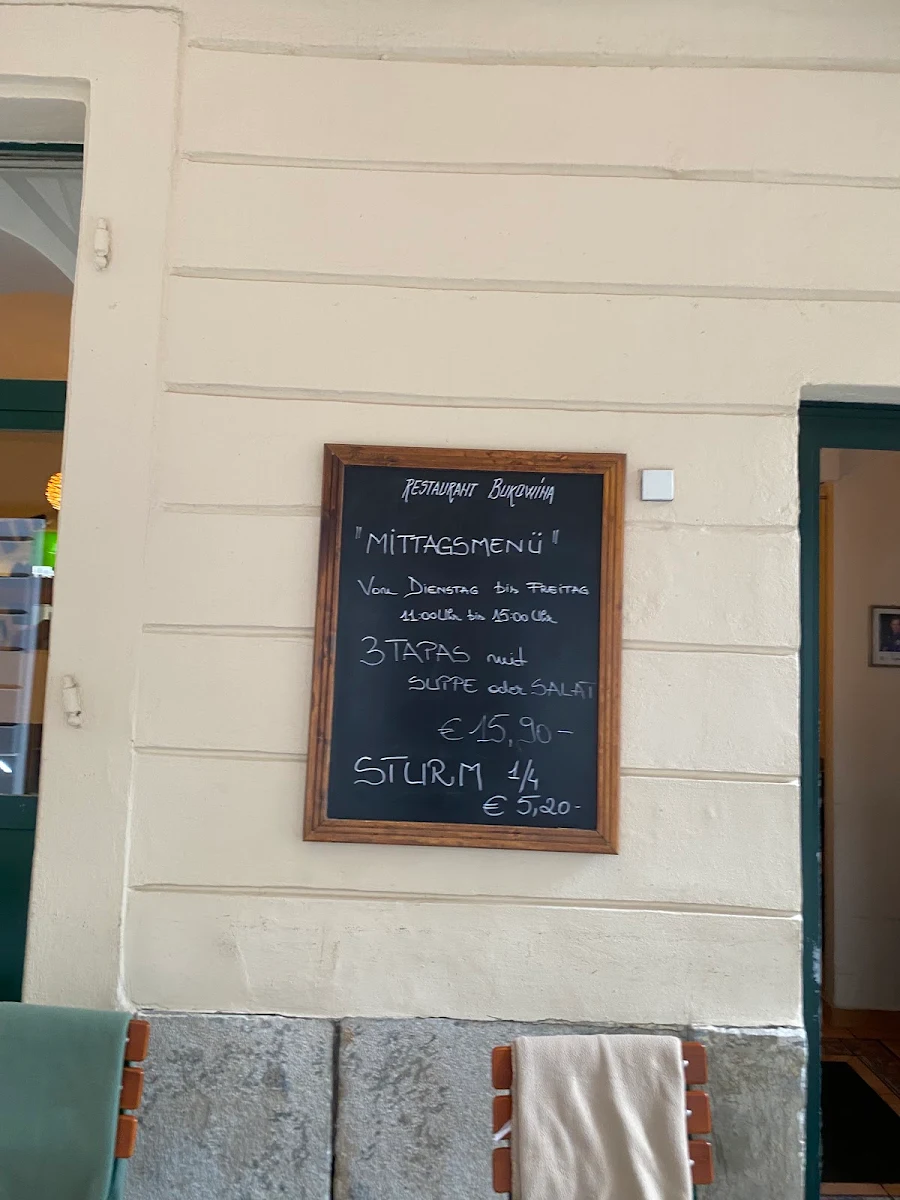 RESTAURANT BUKOWINA
"MITTAGSMENÜ"
Von DIENSTAG bis FREITAG
11:00 Uhr bis 15:00 Uhr
3 TAPAS mit
SUPPE oder SALAT
€ 15,90-
STURM 1/4
€ 5,20-